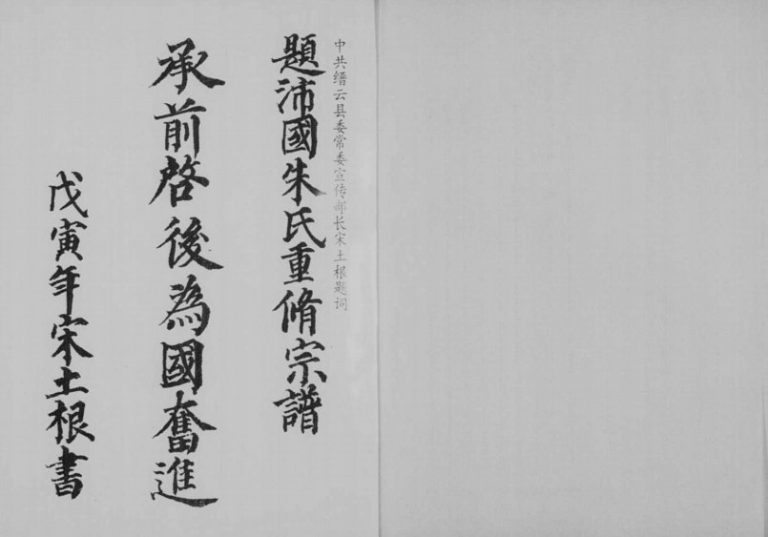 中共缙云县委常委宣传部长宋土根题词
題沛國朱氏重脩宗譜
承前啓後為國奮進
戊寅年宋土根書